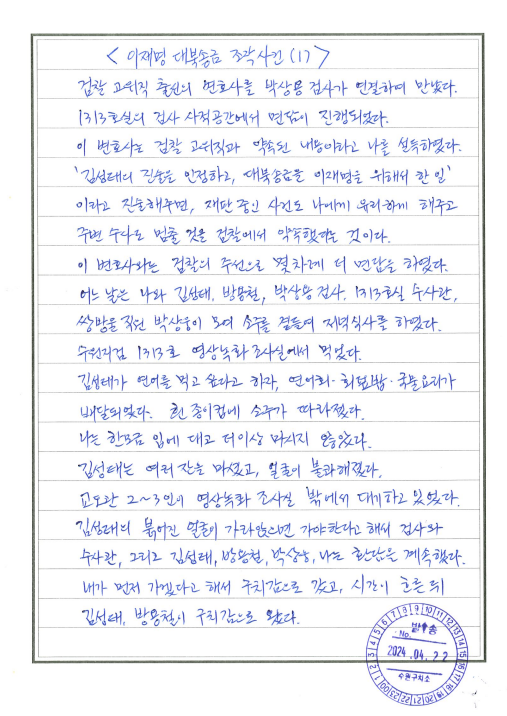 < 이재명 대북송금 조작사건 (1) >
검찰 고위직 출신의 변호사를 박상용 검사가 연결하여 만났다.
1313호실의 검사 사적공간에서 면담이 진행되었다.
이 변호사는 검찰 고위직과 약속된 내용이라고 나를 설득하였다.
'김성태의 진술을 인정하고, 대북송금을 이재명을 위해서 한 일'
이라고 진술해주면, 재판 중인 사건도 나에게 유리하게 해주고
주변 수사도 멈출 것을 검찰에서 약속했다는 것이다.
이 변호사와는 검찰의 주선으로 몇차례 더 면담을 하였다.
어느 날은 나와 김성태, 방용철, 박상용 검사, 1313호실 수사관,
쌍방울 직원 박상웅이 모여 소주를 곁들여 저녁식사를 하였다.
수원지검 1313호 영상녹화 조사실에서 먹었다.
김성태가 연어를 먹고 싶다고 하자, 연어회·회덮밥·국물요리가
배달되었다. 흰 종이컵에 소주가 따라졌다.
나는 한모금 입에 대고 더이상 마시지 않았다.
김성태는 여러 잔을 마셨고, 얼굴이 불콰해졌다.
교도관 2~3인이 영상녹화 조사실 밖에서 대기하고 있었다.
김성태의 붉어진 얼굴이 가라앉으면 가야한다고 해서 검사와
수사관, 그리고 김성태, 방용철, 박상웅, 나는 환담은 계속했다.
내가 먼저 가겠다고 해서 구치감으로 갔고, 시간이 흐른 뒤
김성태, 방용철이 구치감으로 왔다.
발송
No.
2024. 04. 22
수원구치소